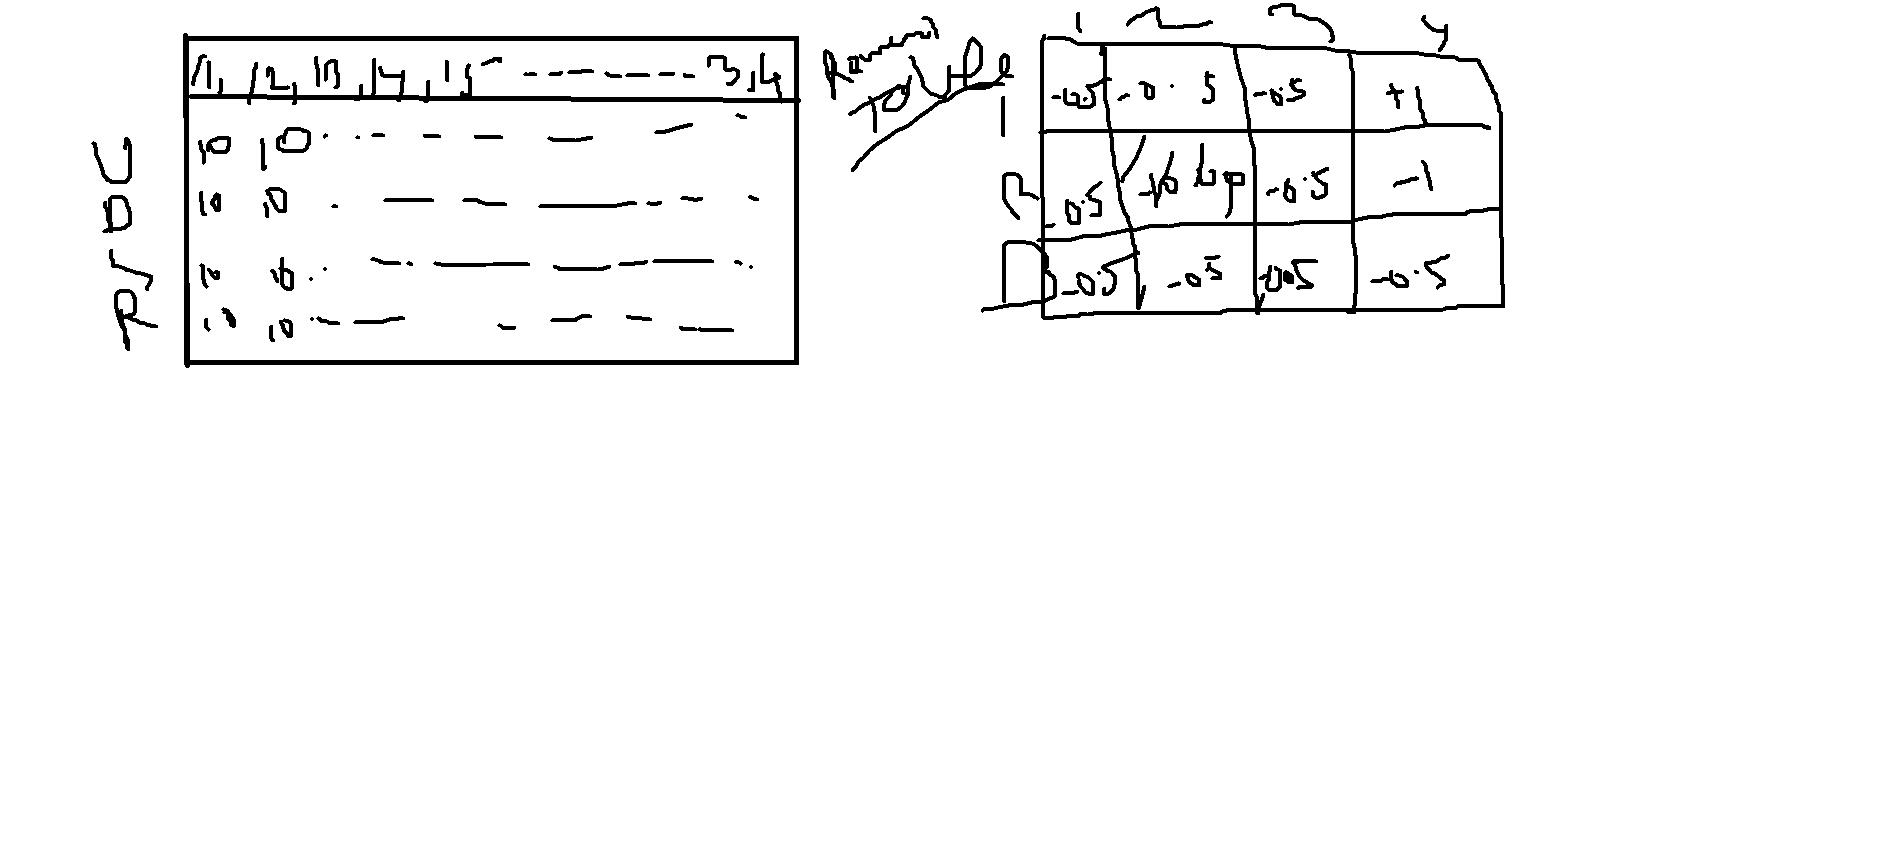 11, 12, 13, 14, 15 ------- 3,4
U 10 10
D 10 10
R, 10 10
10 10
Reward
Table
1 2 3 4
1 -0.5 -0.5 -0.5 +1
2 -0.5 -0.5 -1
-0.5 -0.5 -0.5 -0.5